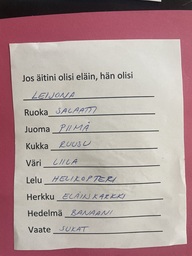 Jos äitini olisi eläin, hän olisi
LEIJONA
Ruoka SALAATTI
Juoma PIIMÄ
Kukka RUUSU
Väri LIILA
Lelu HELIKOPTERI
Herkku ELÄINKARKKI
Hedelmä BANAANI
Vaate SUKAT